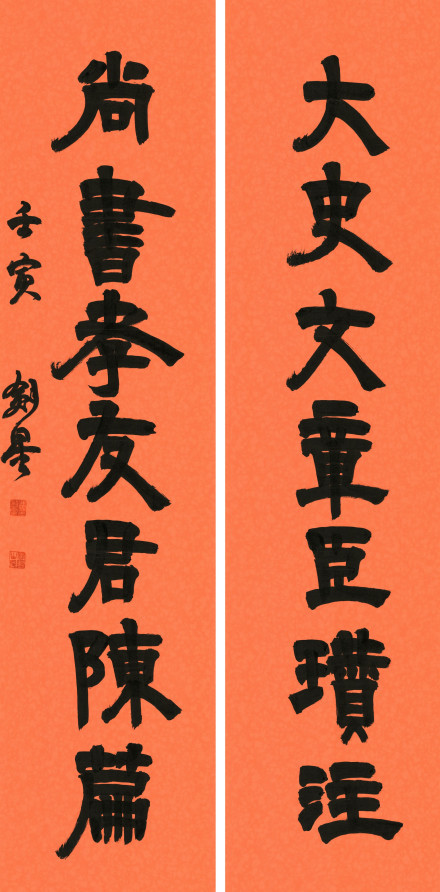 大史文章臣瓚注
尚書孝友君陳篇
壬寅 劉墨